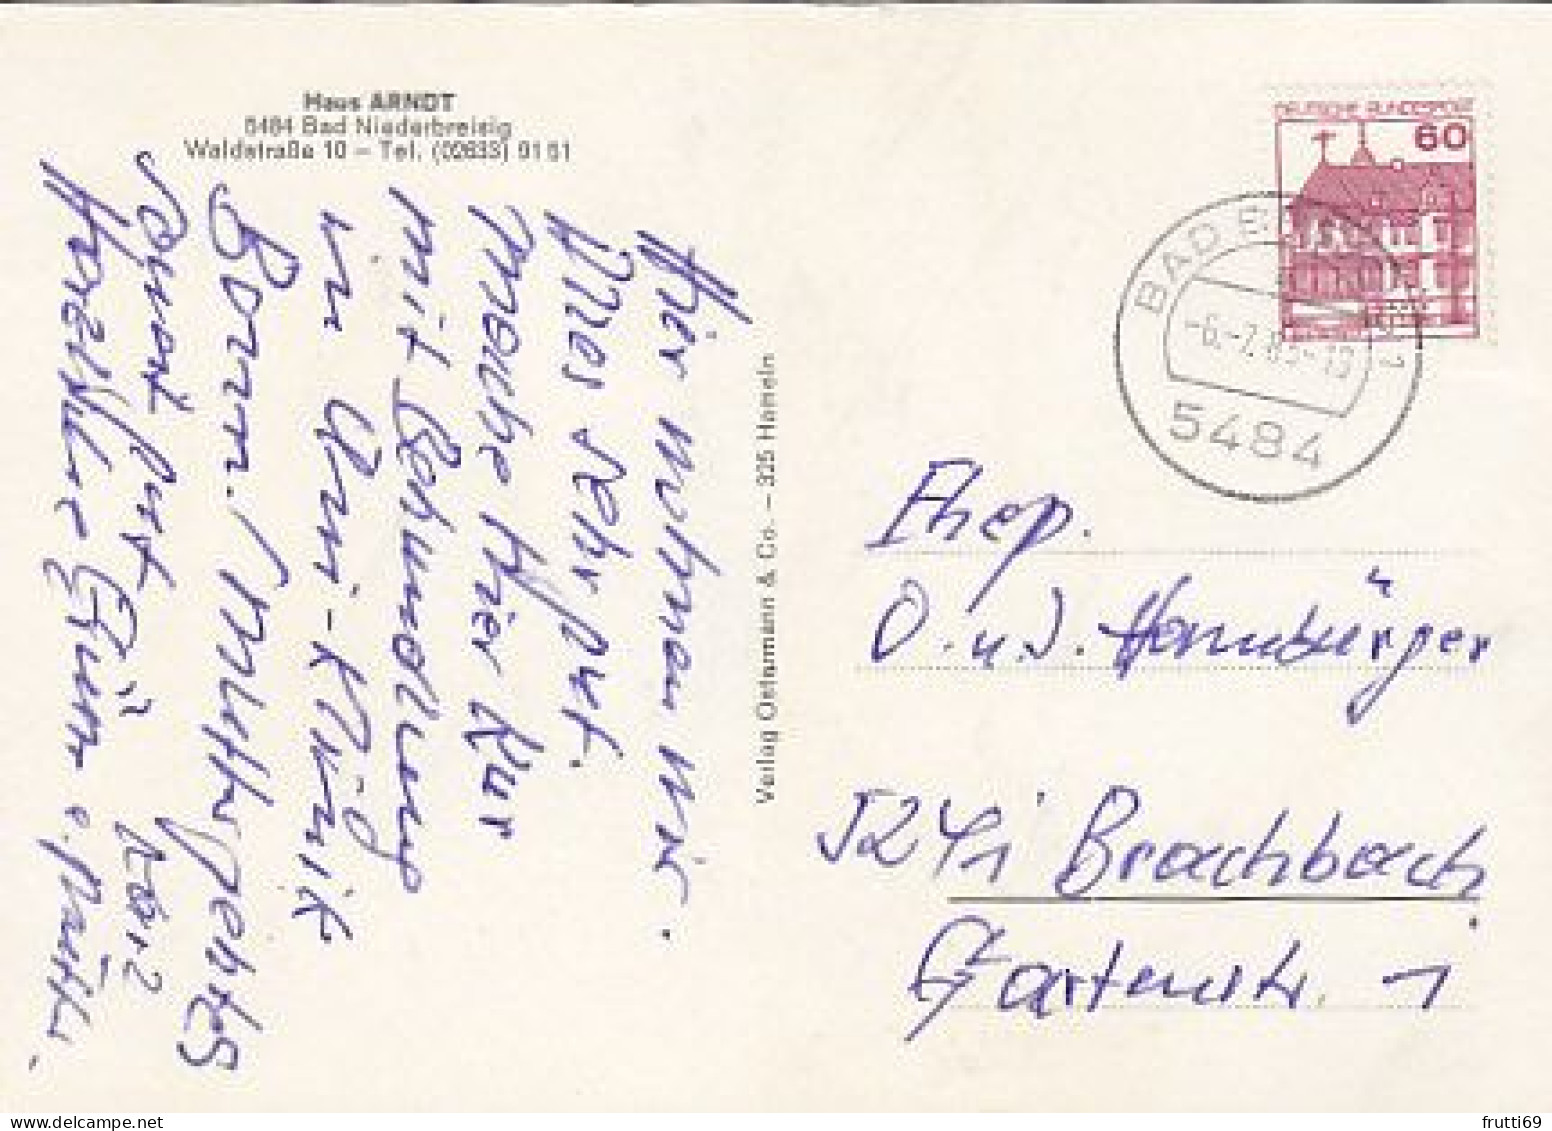 Haus ARNDT
5484 Bad Niederbreisig
Waldstraße 10 – Tel. (02633) 9151
Hier wohnen wir.
Alles sehr gut.
mache hier Kur
mit Behandlung
in Uni-Klinik
Bonn. Mutti geht es
sonst gut
Herzliche Grüße
u. Mutti.
Verlag Ostermann & Co. – 325 Hameln
DEUTSCHE BUNDESPOST
60
BAD
-6.-7.
5484
Ehep.
O. u. J. Hamburger
5241 Brachbach
Gartenstr. 1
frutti69